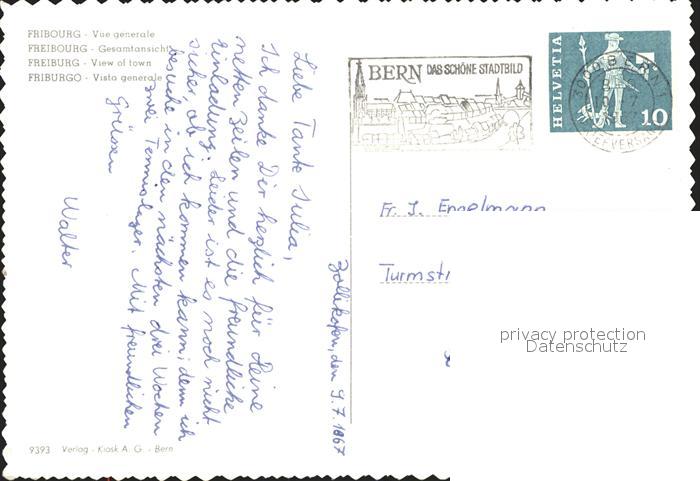 FRIBOURG - Vue generale
FREIBOURG - Gesamtansicht
FREIBURG - View of town
FRIBURGO - Vista generale
BERN DAS SCHÖNE STADTBILD
HELVETIA
10
3000 BERN 1
BRIEFVERSAND
Zollikofen, den 9.7.1967
Liebe Tante Julia,
Ich danke Dir herzlich für Deine
netten Zeilen und die freundliche
Einladung. Leider ist es noch nicht
sicher, ob ich kommen kann, denn ich
besuche in den nächsten drei Wochen
zwei Tennislager. Mit freundlichen
Grüssen
Walter
Fr. J. Engelmann
Turmst
privacy protection
Datenschutz
9393 Verlag - Kiosk A. G. - Bern